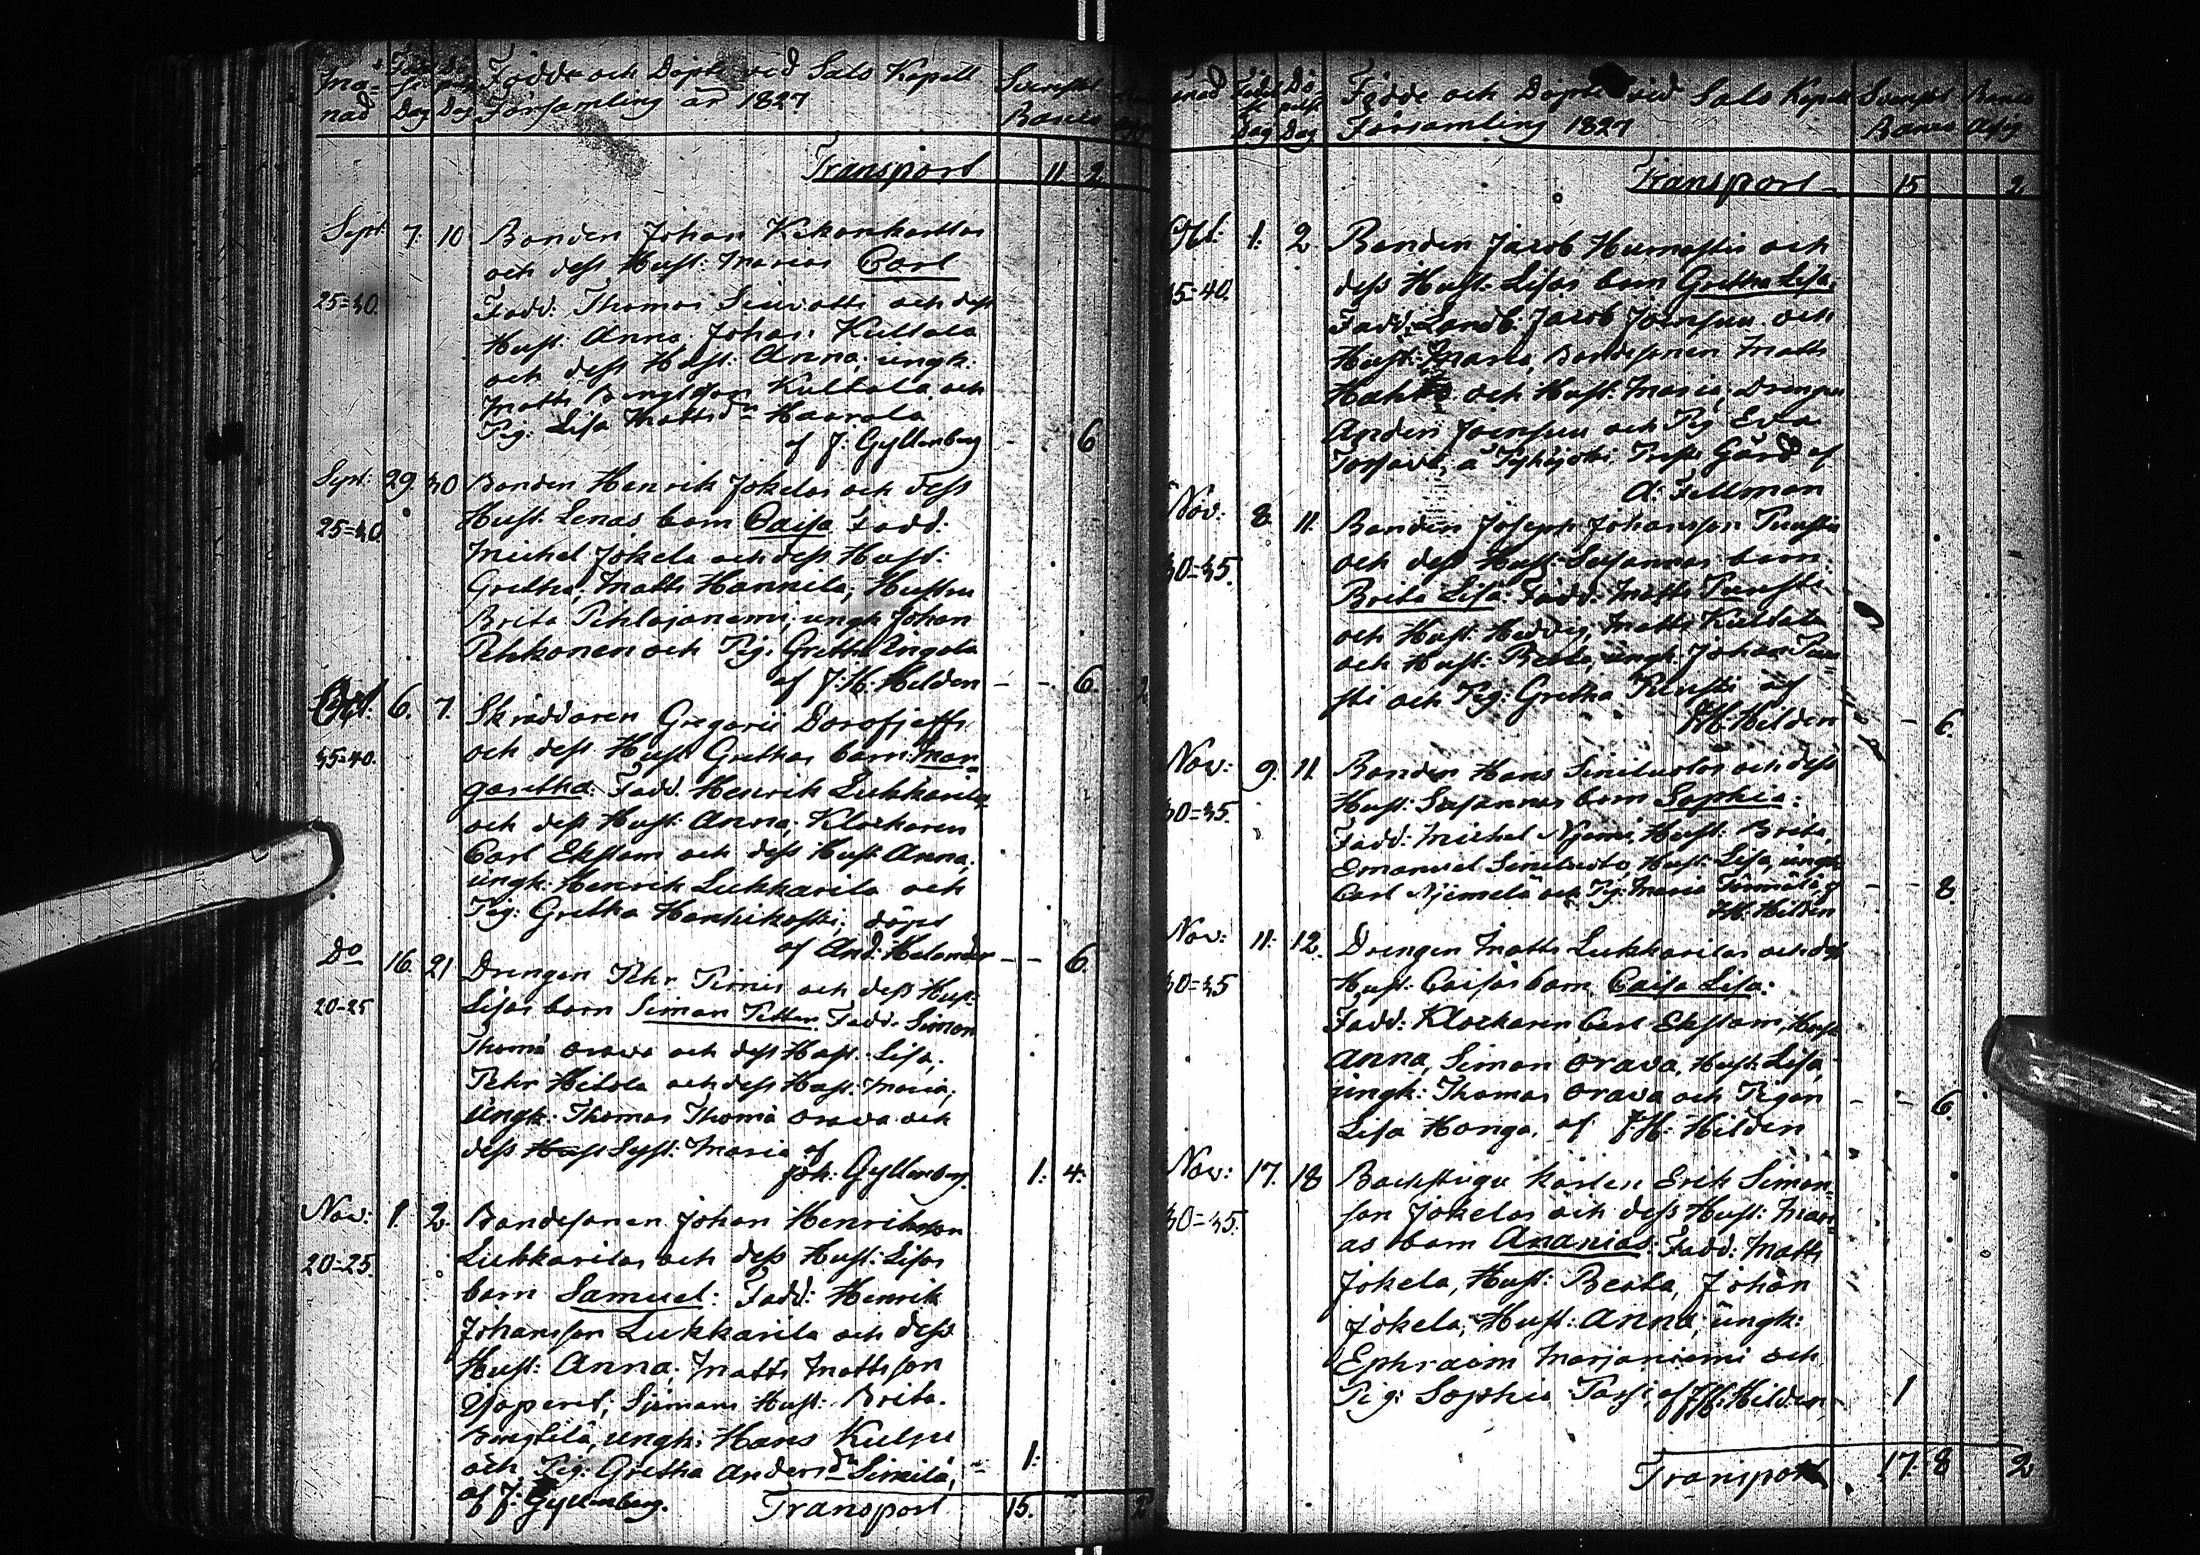 Må- Födelse Döpelse Födde och Döpte vid Salo Kapell
nad Dag Dag Församling år 1827 Banco
Transport 11 2
Sept: 7. 10 Bonden Johan
och dess Hust: Marias Carl
25=30. Fadd: Thomas och dess
Hust: Anna. Johan Kultala
och dess Hust: Anna, ungk:
Matts Bengtsson Kultala och
Pig: Lisa Mattsdr Haarala
af J. Gyllenberg - 6
Sept: 29. 30 Bonden Henrik Jokelas och dess
Hust: Lenas barn Caisa Fadd:
25=30 Michel Jokela och dess Hust:
Gretha, Matts Hannila, Hustru
Brita Pehlajaniemi, ungk Johan
Pehkonen och Pig: Gretha Ingala
af J: H: Helden - - 6.
Oct: 6. 7. Skräddaren Gregorii Dorofjeffs
och dess Hust Grethas barn Mar-
35=40. garetha: Fadd. Henrik Lukkarila
och dess Hust: Anna, Klockaren
Carl Ekstam och dess Hust: Anna,
ungk: Henrik Lukkarila och
Pig: Gretha döpt
af And: Helander - - 6.
Do 16. 21 Drengen Pehr och dess Hust:
20-25 Lisas barn Simon Petter. Fadd. Simon
Thomæ Orava och dess Hust: Lisa,
Pehr Hitola och dess Hust: Maria;
Ungk: Thomas Thomæ Orava och
dess Hust Syst: Maria af
Joh: Gyllenberg. 1: 4:
Nov: 1. 2. Bondesonen Johan Henriksson
20=25. Lukkarilas och dess Hust: Lisas
barn Samuel: Fadd: Henrik
Johansson Lukkarila och dess
Hust: Anna. Matts Mattsson
Hust: Brita
ungk: Hans
och Pig: Gretha Andersdr Similä, - 1:
af J: Gyllenberg.
Transport 15.
Månad Födelse Döpelse Födde och Döpte vid Salo Kapell Banco
Dag Dag Församling 1827 Banco
Transport - 15 2
Oct: 1: 2 Bonden Jacob och
35=40. dess Hust: Lisas barn Gretha Lisa.
Fadd: Landb: Jacob Joensuu och
Hust: Maria, Bondesonen Matts
och Hust: Maria, Drengen
Anders Joensuu och Pig Eva
af
A: Fellman
Nov: 8. 11. Bonden Joseph Johansson
30=35. och dess Hust: Susannas barn
Brita Lisa. Fadd: Matts
och Hust: Matts Kultala
och Hust: Beata, ungk: Johan
och Pig: Gretha af
J.H: Hilden - 6.
Nov: 9. 11. Bonden Hans Siniluotos och dess
30=35. Hust: Susannas barn Sophia:
Fadd: Michel Hust: Brita,
Emanuel Siniluoto, Hust: Lisa, ungk:
Carl och Pig: Maria
J.H. Hilden - - 8.
Nov: 11: 12. Drengen Matts Lukkarilas och dess
30=35 Hust: Caisas barn Caisa Lisa:
Fadd: Klockaren Carl Ekstam, Hust
Anna, Simon Orava, Hust: Lisa,
ungk: Thomas Orava och Pigan
Lisa Honga. af J.H: Hilden - - 6.
Nov: 17. 18 Backstugu karlen Erik Simon-
30=35. son Jokelas och dess Hust: Mari-
as barn Ananias: Fadd: Matts
Jokela, Hust: Beata, Johan
Jokela, Hust: Anna, ungk:
Ephraim Marjaniemi och
Pig: Sophia af J.H: Hilden - 1
Transport 17: 8 2